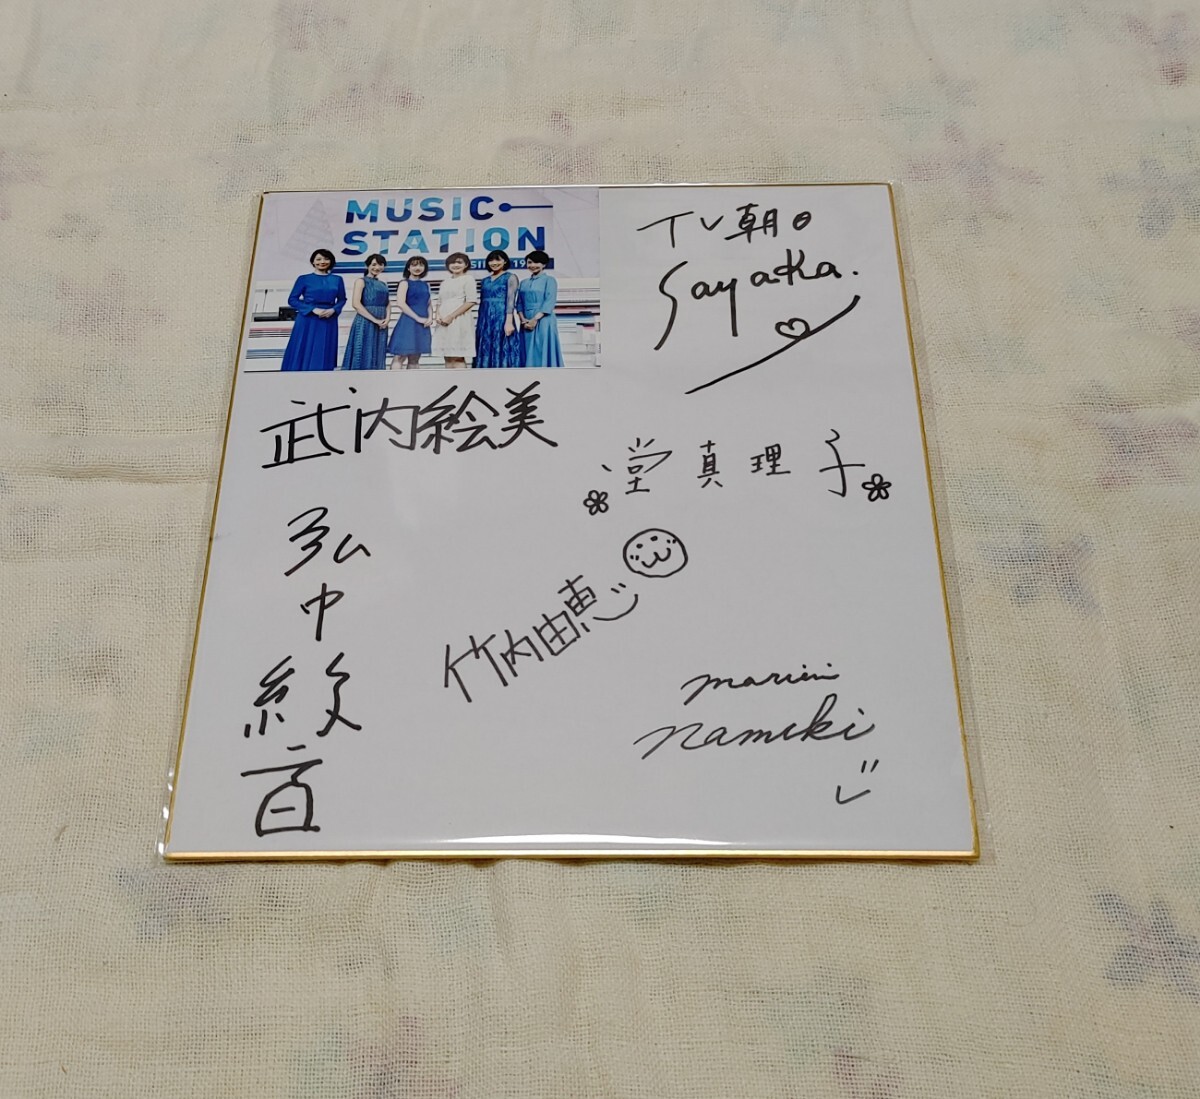 MUSIC
STATION
TV朝日
Sayaka.
武内絵美
堂真理子
弘中綾音
竹内由恵
marin
namiki